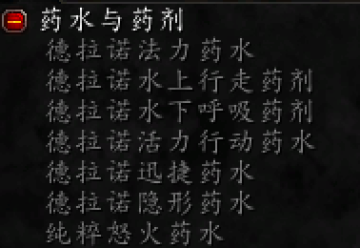 药水与药剂
德拉诺法力药水
德拉诺水上行走药剂
德拉诺水下呼吸药剂
德拉诺活力行动药水
德拉诺迅捷药水
德拉诺隐形药水
纯粹怒火药水